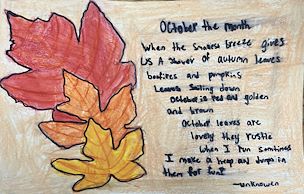 October the month
When the breeze gives
us A shower of autumn leaves
bonfires and pumpkins
Leaves Sailing down
October is red and golden
and brown
October leaves are
lovely they rustle
when I run sometimes
I make a heap and Jumps in
them for fun!
~unknowen